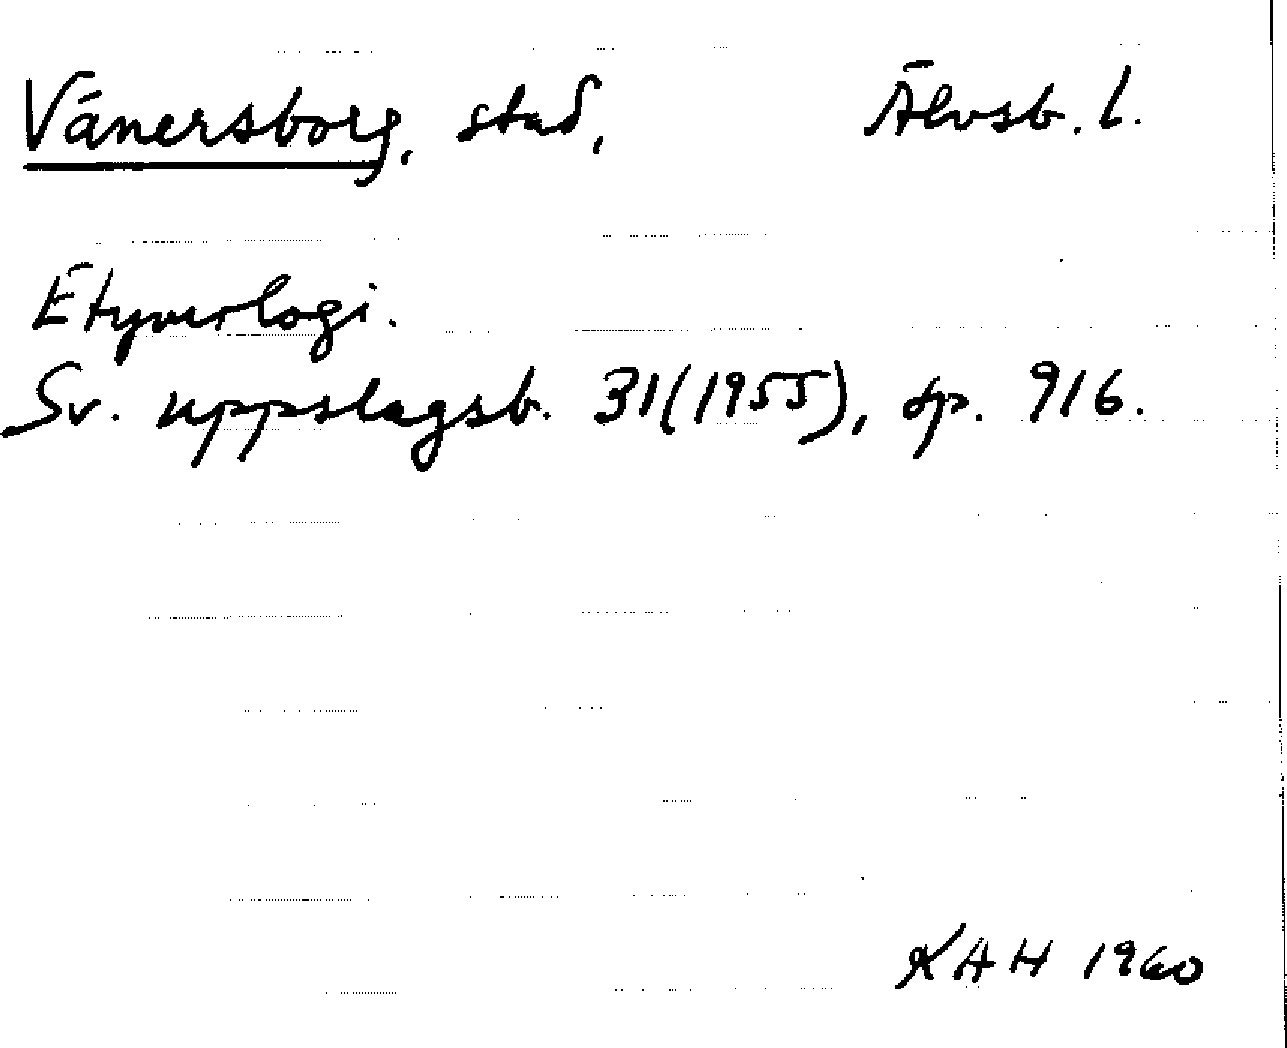 Vänersborg, stad, Älvsb. l.
Etymologi.
Sv. uppslagsb. 31(1955), sp. 916.
KAH 1960